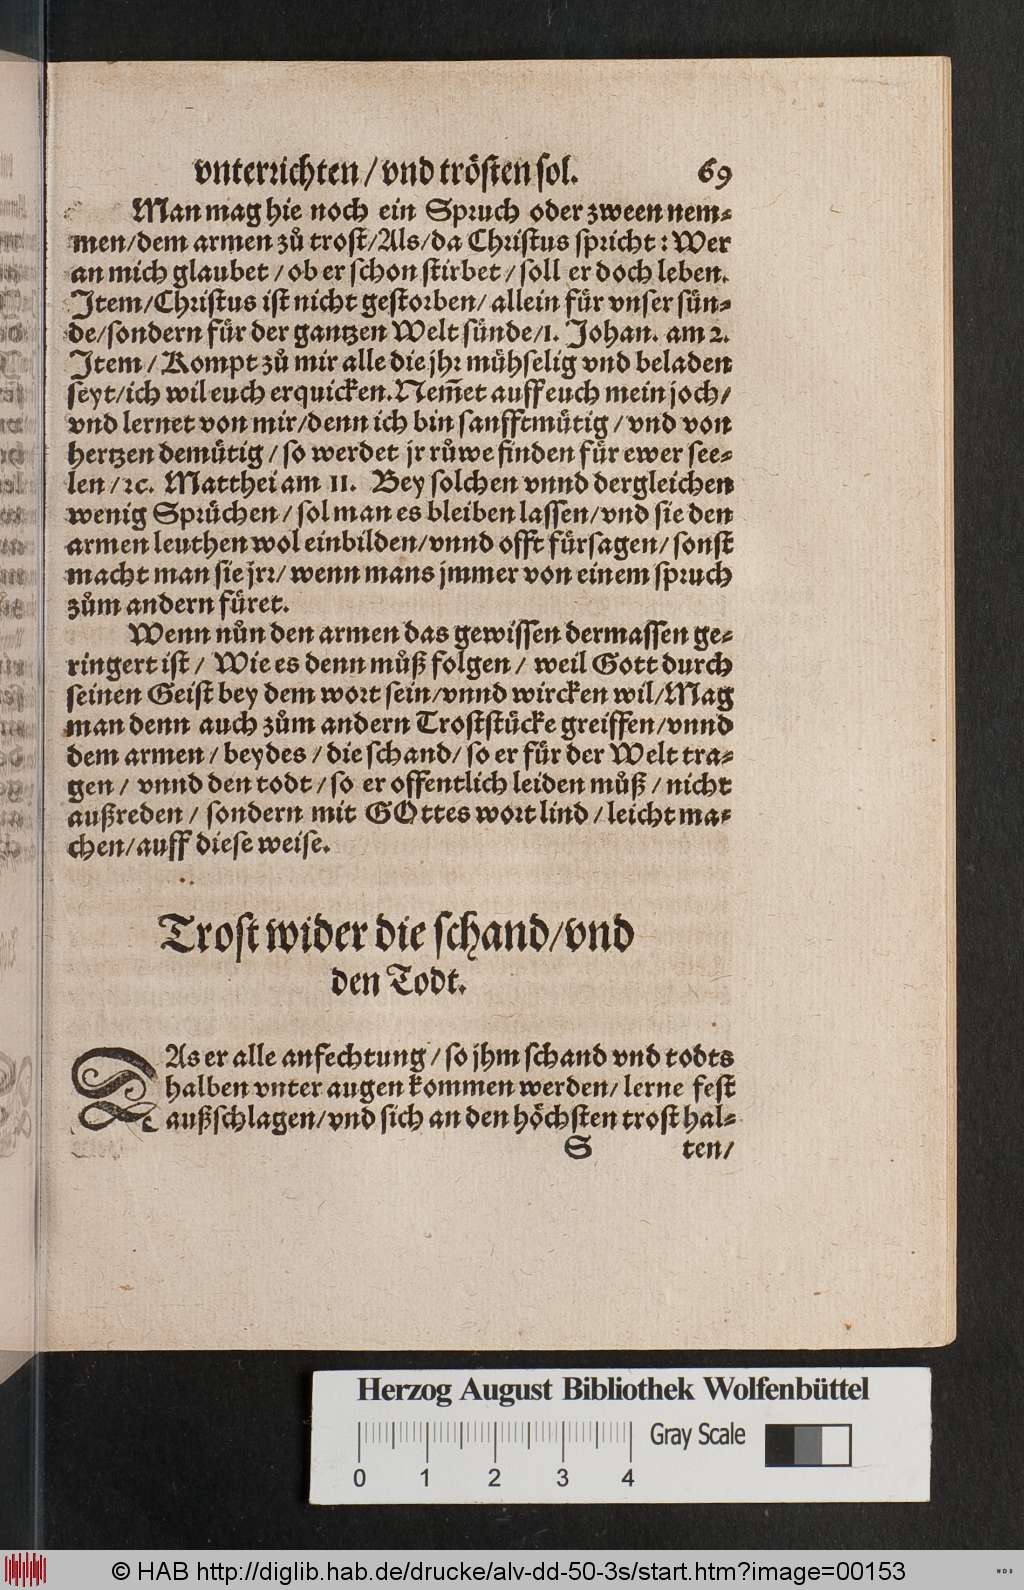 vnterrichten / vnd trösten sol. 69
Man mag hie noch ein Spruch oder zween nem⸗
men/dem armen zů trost/Als/da Christus spricht: Wer
an mich glaubet / ob er schon stirbet / soll er doch leben.
Item/Christus ist nicht gestorben/ allein fuͤr vnser suͤn⸗
de/sondern fuͤr der gantzen Welt suͤnde/1. Johan. am 2.
Item / Kompt zů mir alle die jhr muͤhselig vnd beladen
seyt/ich wil euch erquicken. Nem̃et auff euch mein joch/
vnd lernet von mir/denn ich bin sanfftmuͤtig / vnd von
hertzen demuͤtig / so werdet jr růwe finden fuͤr ewer see⸗
len / ꝛc. Matthei am 11. Bey solchen vnnd dergleichen
wenig Spruͤchen / sol man es bleiben lassen/vnd sie den
armen leuthen wol einbilden/vnnd offt fuͤrsagen/ sonst
macht man sie jrr/ wenn mans jmmer von einem spruch
zům andern fuͤret.
Wenn nůn den armen das gewissen dermassen ge⸗
ringert ist / Wie es denn můß folgen / weil Gott durch
seinen Geist bey dem wort sein/vnnd wircken wil/Mag
man denn auch zům andern Troststuͤcke greiffen/vnnd
dem armen / beydes / die schand/ so er fuͤr der Welt tra⸗
gen / vnnd den todt / so er offentlich leiden můß / nicht
außreden / sondern mit GOttes wort lind / leicht ma⸗
chen/auff diese weise.
Trost wider die schand/vnd
den Todt.
DAs er alle anfechtung / so jhm schand vnd todts
halben vnter augen kommen werden/ lerne fest
außschlagen/vnd sich an den hoͤchsten trost hal⸗
S ten/
Herzog August Bibliothek Wolfenbüttel
Gray Scale
0 1 2 3 4
© HAB http://diglib.hab.de/drucke/alv-dd-50-3s/start.htm?image=00153